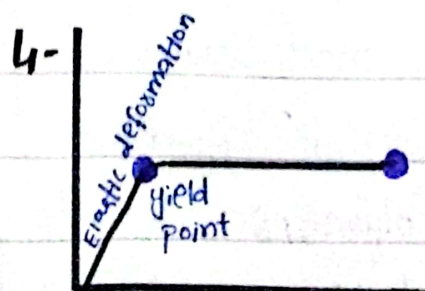 4-
Elastic deformation
yield
point